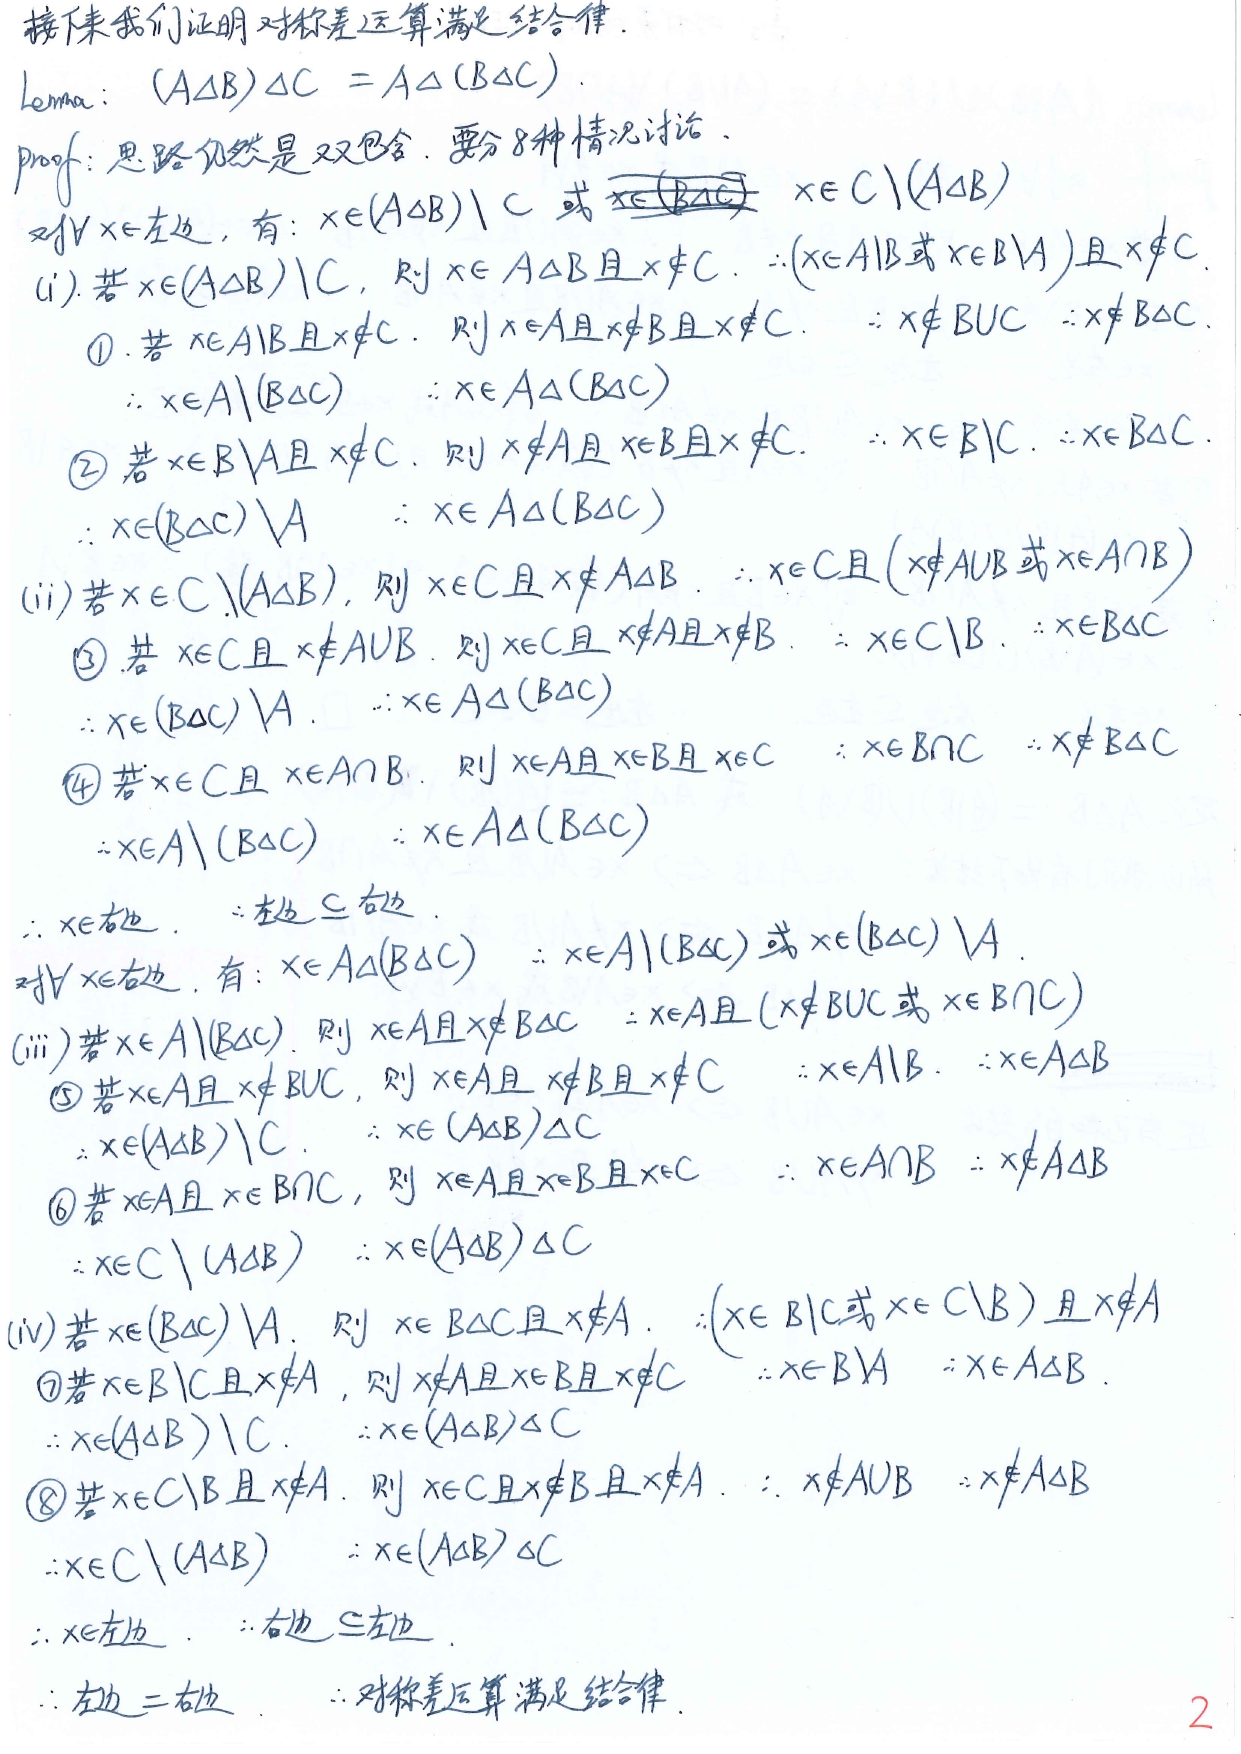 接下来我们证明对称差运算满足结合律.
Lemma: (A△B)△C = A△(B△C)
proof: 思路仍然是双包含. 要分8种情况讨论.
对∀x∈左边, 有: x∈(A△B)\C 或 x∈(B△C) x∈C\(A△B)
(i). 若x∈(A△B)\C, 则x∈A△B且x∉C. ∴(x∈A\B或x∈B\A)且x∉C.
①. 若x∈A\B且x∉C. 则x∈A且x∉B且x∉C. ∴x∉B∪C ∴x∉B△C.
∴x∈A\(B△C) ∴x∈A△(B△C)
② 若x∈B\A且x∉C. 则x∉A且x∈B且x∉C. ∴x∈B\C. ∴x∈B△C.
∴x∈(B△C)\A ∴x∈A△(B△C)
(ii) 若x∈C\(A△B), 则x∈C且x∉A△B. ∴x∈C且(x∉A∪B或x∈A∩B)
③. 若x∈C且x∉A∪B. 则x∈C且x∉A且x∉B. ∴x∈C\B. ∴x∈B△C
∴x∈(B△C)\A. ∴x∈A△(B△C)
④ 若x∈C且x∈A∩B. 则x∈A且x∈B且x∈C ∴x∈B∩C ∴x∉B△C
∴x∈A\(B△C) ∴x∈A△(B△C)
∴x∈右边. ∴左边⊆右边.
对∀x∈右边, 有: x∈A△(B△C) ∴x∈A\(B△C)或x∈(B△C)\A.
(iii) 若x∈A\(B△C). 则x∈A且x∉B△C ∴x∈A且(x∉B∪C或x∈B∩C)
⑤ 若x∈A且x∉B∪C, 则x∈A且x∉B且x∉C ∴x∈A\B. ∴x∈A△B
∴x∈(A△B)\C. ∴x∈(A△B)△C
⑥ 若x∈A且x∈B∩C, 则x∈A且x∈B且x∈C ∴x∈A∩B ∴x∉A△B
∴x∈C\(A△B) ∴x∈(A△B)△C
(iv) 若x∈(B△C)\A. 则x∈B△C且x∉A. ∴(x∈B\C或x∈C\B)且x∉A
⑦ 若x∈B\C且x∉A, 则x∉A且x∈B且x∉C ∴x∈B\A ∴x∈A△B.
∴x∈(A△B)\C. ∴x∈(A△B)△C
⑧ 若x∈C\B且x∉A. 则x∈C且x∉B且x∉A. ∴x∉A∪B ∴x∉A△B
∴x∈C\(A△B) ∴x∈(A△B)△C
∴x∈左边. ∴右边⊆左边.
∴左边=右边. ∴对称差运算满足结合律.
2